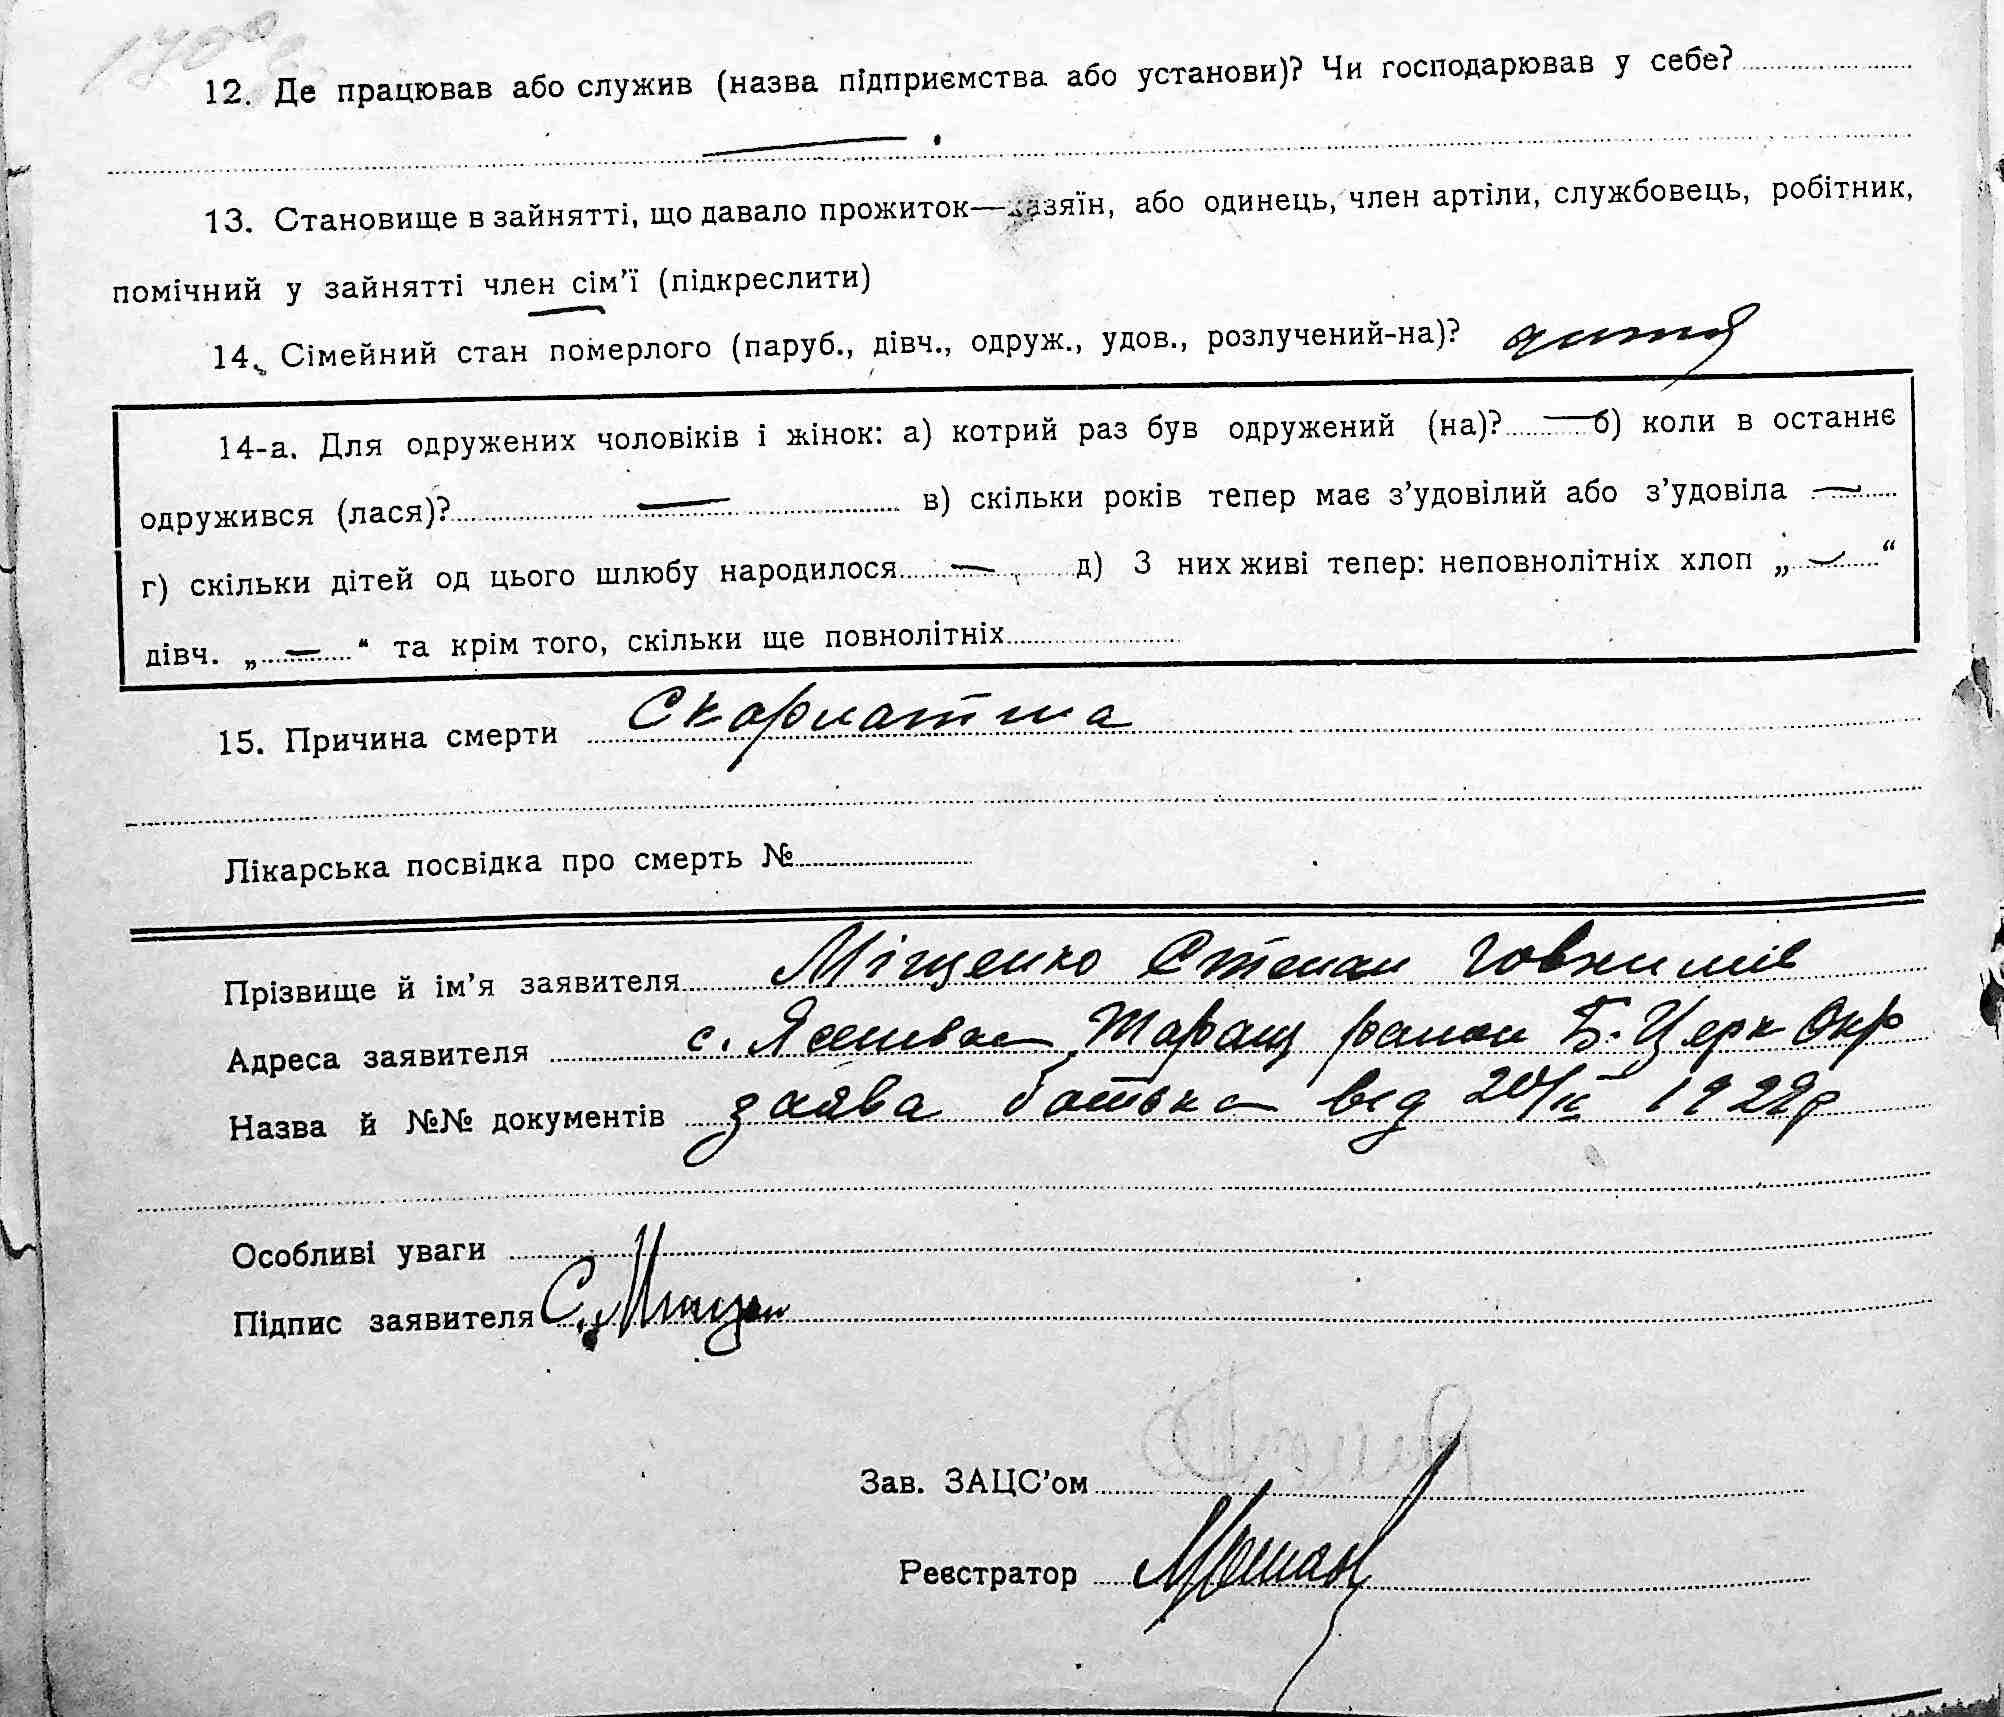 12. Де працював або служив (назва підприємства або установи)? Чи господарював у себе?
13. Становище в зайнятті, що давало прожиток—хазяїн, або одинець, член артіли, службовець, робітник,
помічний у зайнятті член сім'ї (підкреслити)
14. Сімейний стан померлого (паруб., дівч., одруж., удов., розлучений-на)? дитя
14-а. Для одружених чоловіків і жінок: а) котрий раз був одружений (на)? — б) коли в останнє
одружився (лася)? — в) скільки років тепер має з'удовілий або з'удовіла —
г) скільки дітей од цього шлюбу народилося — д) З них живі тепер: неповнолітніх хлоп „—“
дівч. „—“ та крім того, скільки ще повнолітніх
15. Причина смерти Скарлатина
Лікарська посвідка про смерть №
Прізвище й ім'я заявителя Міщенко Степан
Адреса заявителя с. Ясенівка Таращ район Б. Церк Окр
Назва й №№ документів заява батька від 20/IX 1928р
Особливі уваги
Підпис заявителя С. Міщен
Зав. ЗАЦС'ом
Реєстратор